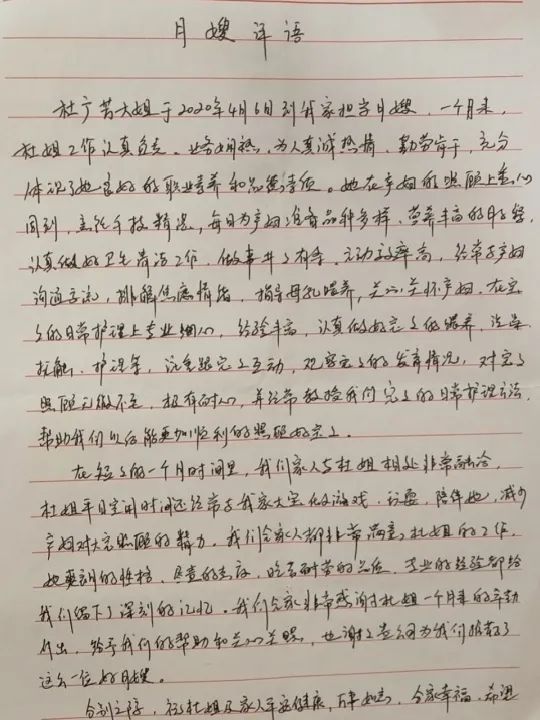 月嫂评语
杜广芳大姐于2020年4月6日到我家担当月嫂,一个月来,
杜姐工作认真负责、业务娴熟,为人真诚热情,勤劳肯干,充分
体现了她良好的职业素养和品德素质。她在产妇的照顾上悉心
周到,烹饪手技精湛,每日为产妇准备品种多样、营养丰富的月子餐,
认真做好卫生清洁工作,做事井井有条,主动效率高,经常与产妇
沟通交流,排解焦虑情绪,指导母乳喂养,关心关怀产妇。在宝
宝的日常护理上专业细心,经验丰富,认真做好宝宝的喂养、洗澡
抚触、护理等,注重跟宝宝互动,观察宝宝的发育情况,对宝宝
照顾无微不至,极有耐心,并经常教给我们宝宝的日常护理方法,
帮助我们以后能更加顺利的照顾好宝宝。
在短短的一个月时间里,我们家人与杜姐相处非常融洽,
杜姐平日空闲时间还经常与我家大宝做游戏、玩耍,陪伴她,减少
产妇对大宝照顾的精力。我们全家人都非常满意杜姐的工作,
她爽朗的性格、尽责的态度、吃苦耐劳的品质、专业的经验都给
我们留下了深刻的记忆。我们全家非常感谢杜姐一个月来的辛勤
付出,给予我们的帮助和关心关照,也谢谢贵公司为我们推荐了
这么一位好月嫂。
分别之际,祝杜姐及家人平安健康,万事如意,全家幸福,希望